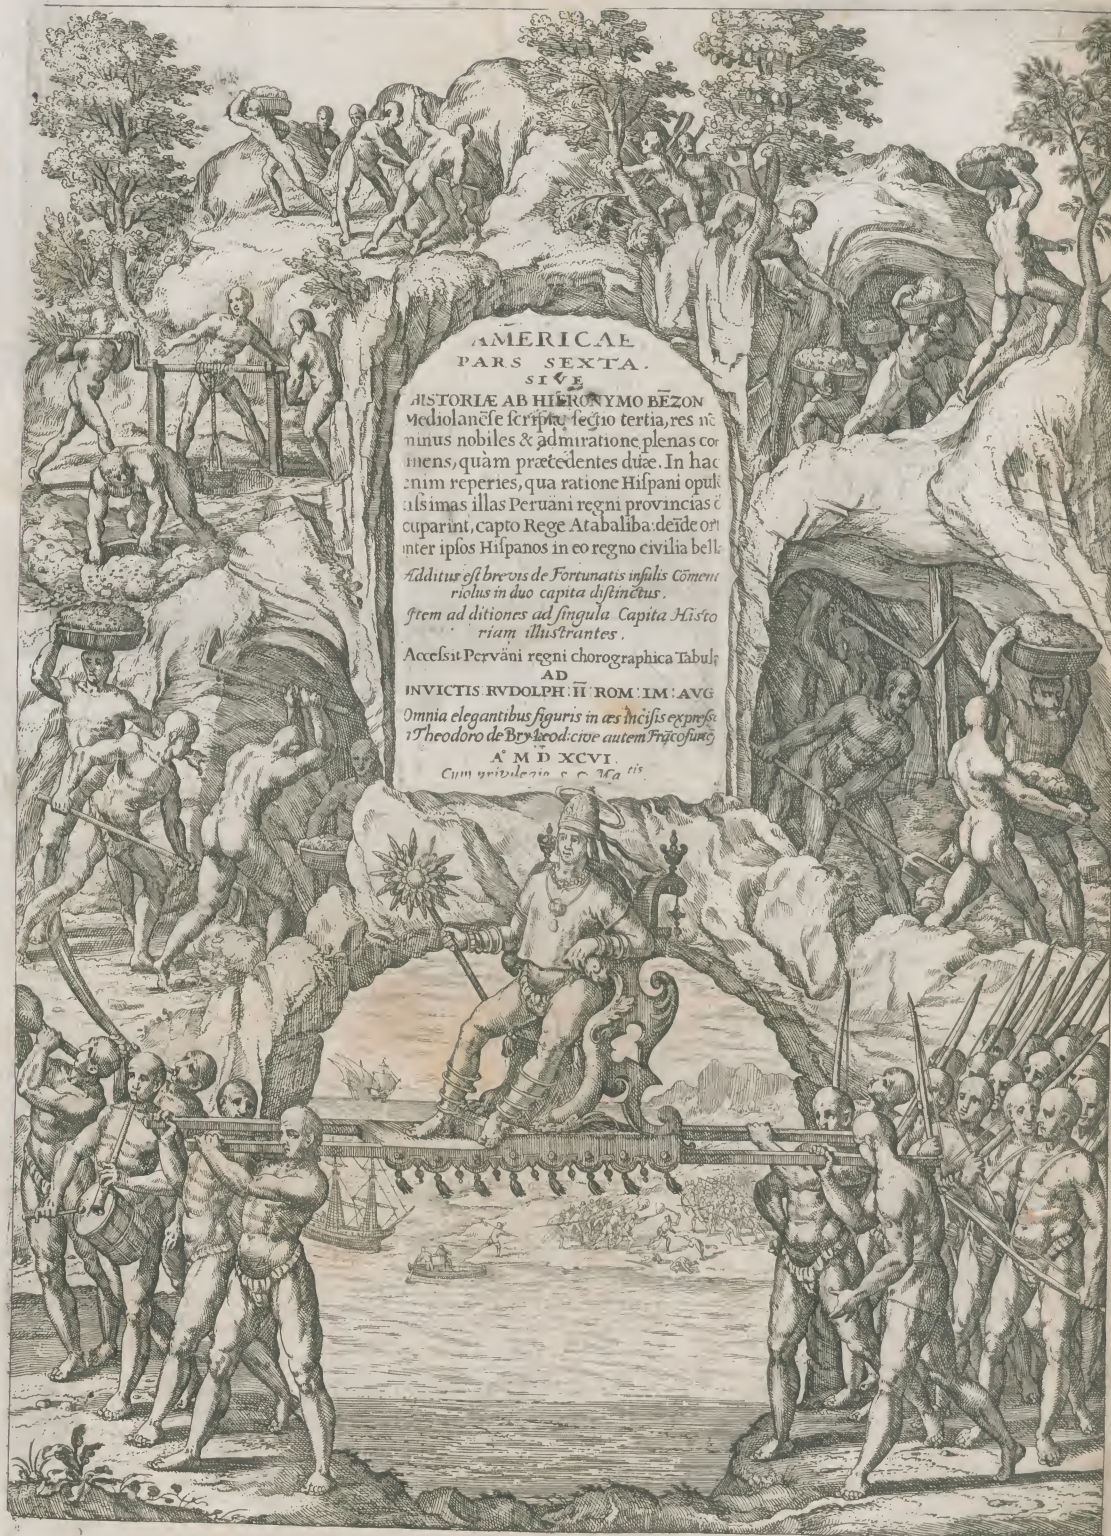 AMERICAE
PARS SEXTA.
SIVE
HISTORIÆ AB HIERONYMO BĒZON
Mediolanēse scriptæ, sectio tertia, res nō
minus nobiles & admiratione plenas con
inens, quàm præcedentes duæ. In hac
enim reperies, qua ratione Hispani opulē
issimas illas Peruäni regni provincias
cuparint, capto Rege Atabaliba: deīde ort
inter ipsos Hispanos in eo regno civilia bell
Additus est brevis de Fortunatis insulis Cōment
riolus in duo capita distinctus.
Item ad ditiones ad singula Capita Histo
riam illustrantes.
Accessit Pervāni regni chorographica Tabula
AD
INVICTIS. RVDOLPH: II ROM: IM: AVG
Omnia elegantibus figuris in æs incisis expressa
Theodoro de Bry Leod: cive autem Frācofurtē
A° M D XCVI.
Cum privilegio S. C. Ma tis.